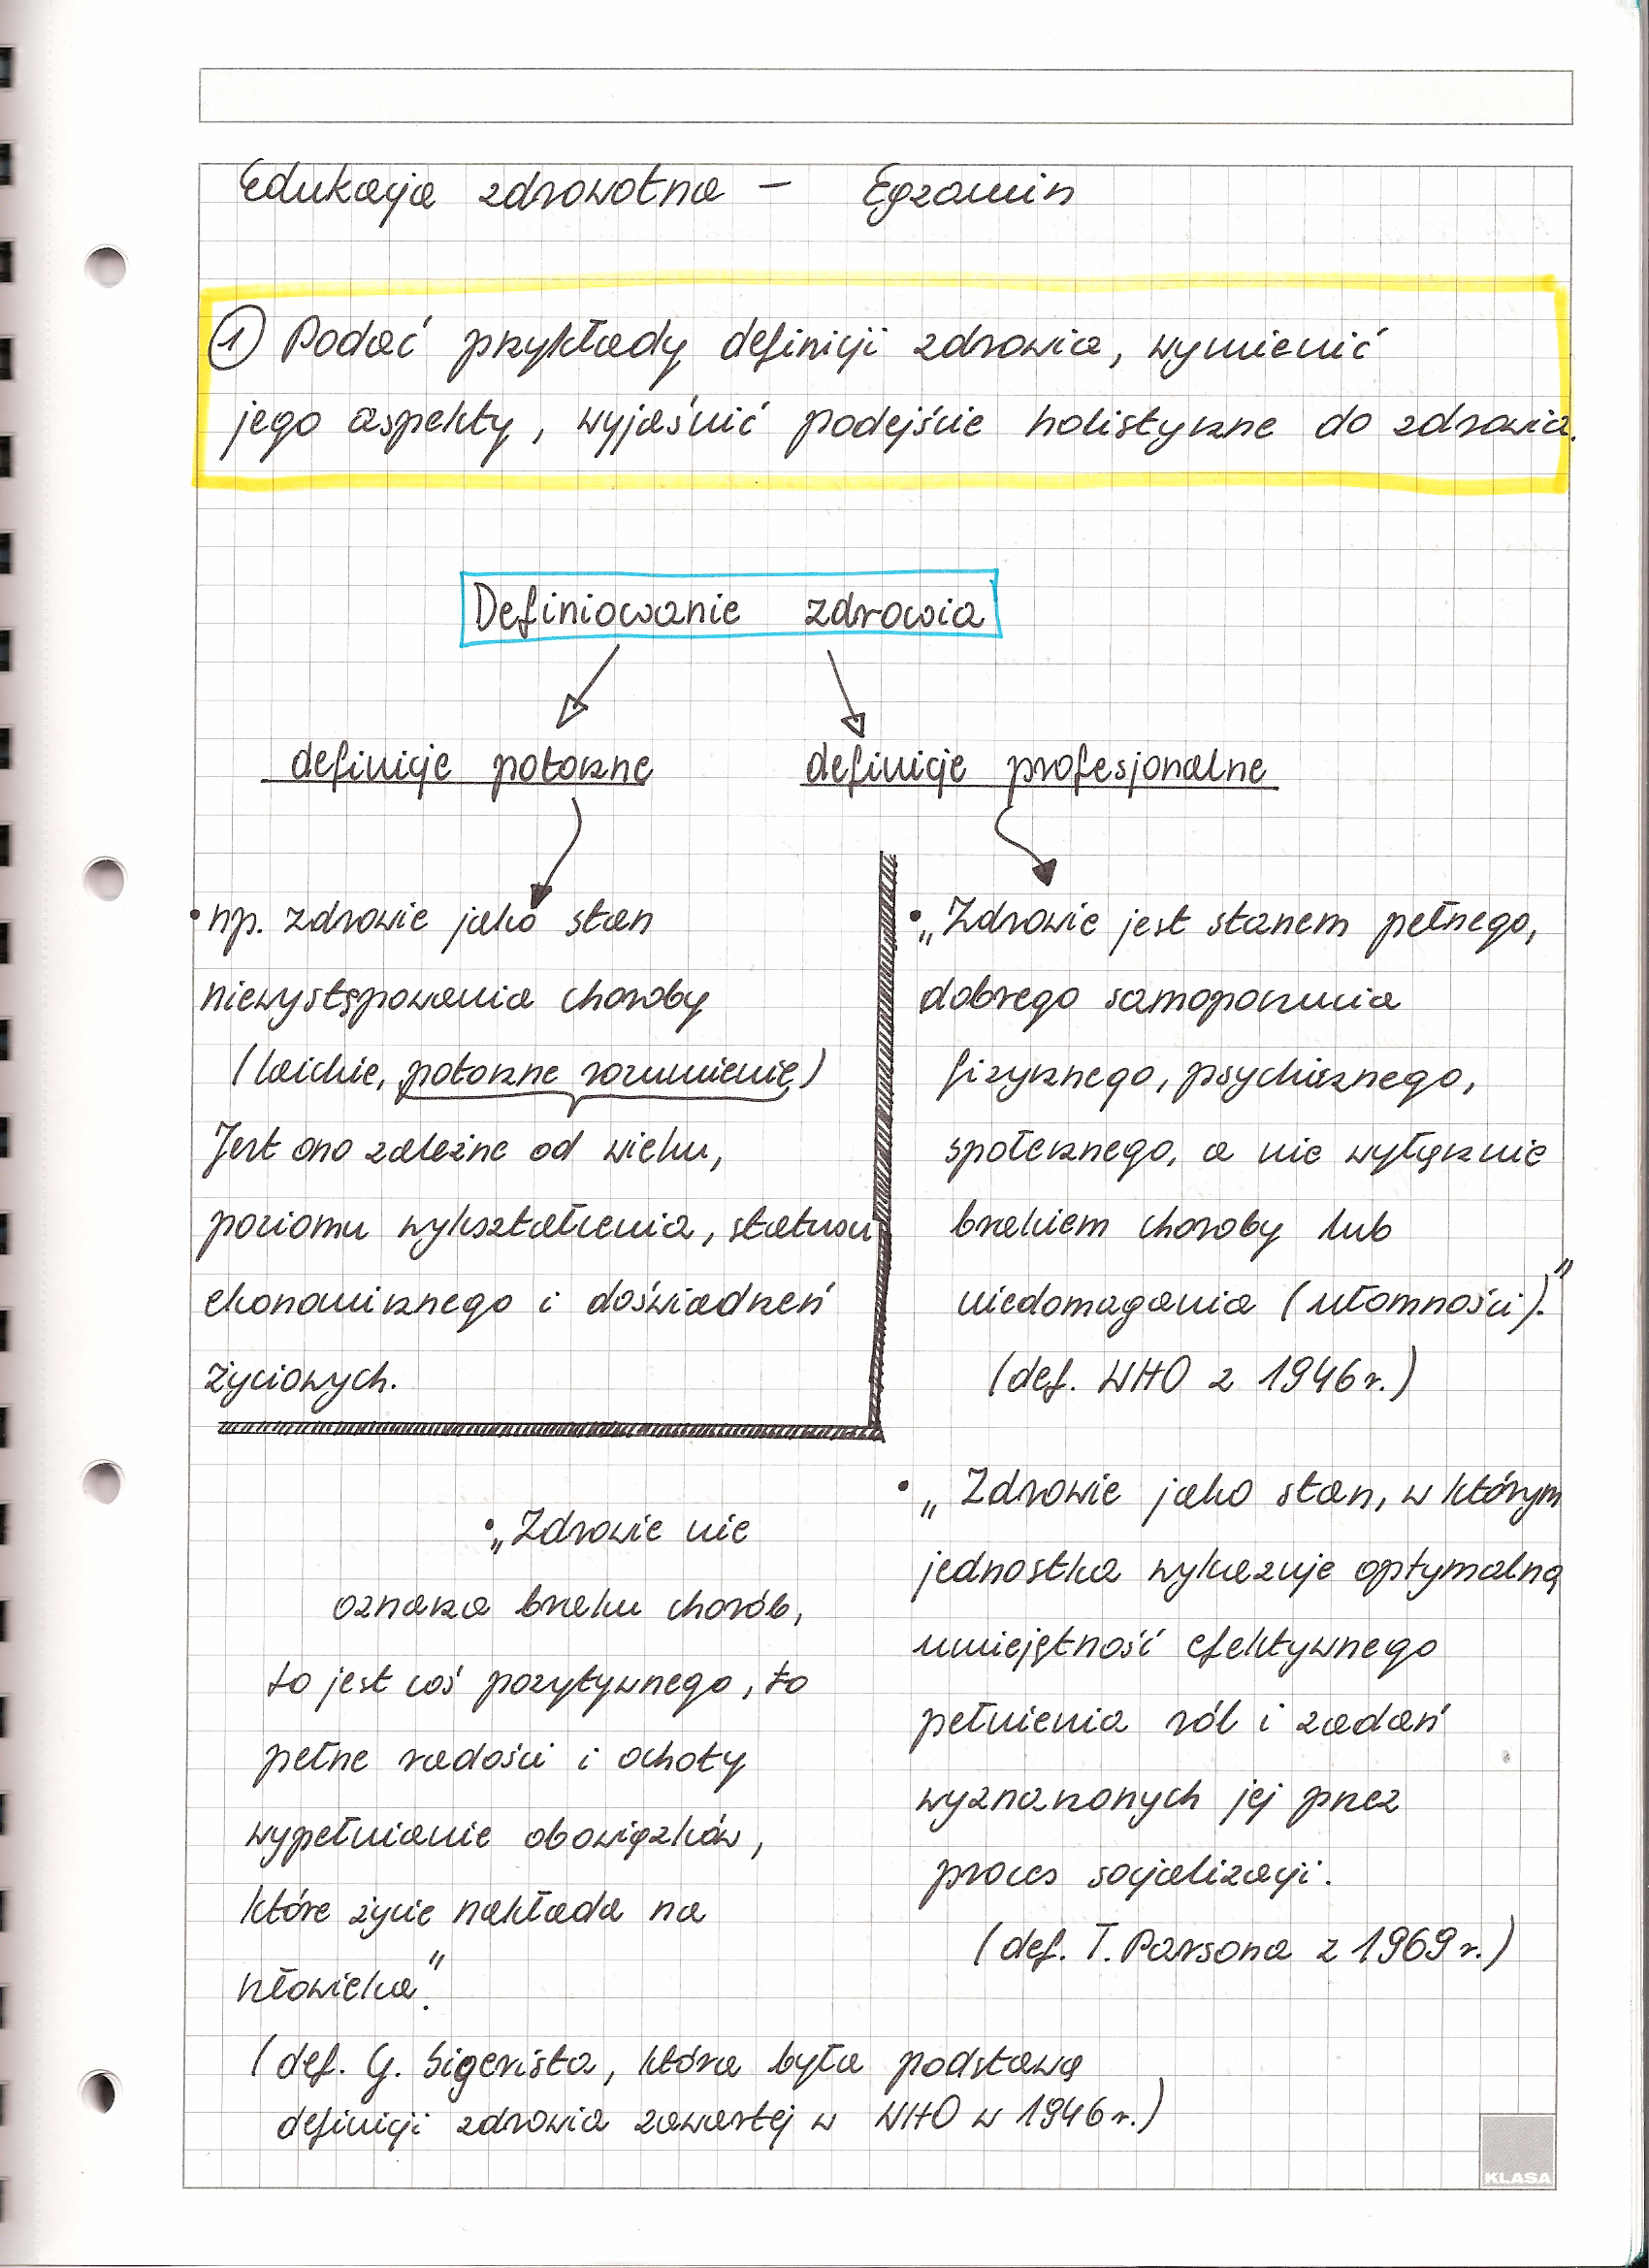 Edukacja zdrowotna – Egzamin
① Podać przykłady definicji zdrowia, wymienić
jego aspekty, wyjaśnić podejście holistyczne do zdrowia.
Definiowanie zdrowia
definicje potoczne
definicje profesjonalne
• np. zdrowie jako stan
niewystępowania choroby
(laickie, potoczne rozumienie)
Jest ono zależne od wieku,
poziomu wykształcenia, statusu
ekonomicznego i doświadczeń
życiowych.
• „Zdrowie jest stanem pełnego,
dobrego samopoczucia
fizycznego, psychicznego,
społecznego, a nie wyłącznie
brakiem choroby lub
niedomagania (ułomności)."
(def. WHO z 1946 r.)
• „Zdrowie jako stan, w którym
jednostka wykazuje optymalną
umiejętność efektywnego
pełnienia ról i zadań
wyznaczonych jej przez
proces socjalizacji.
(def. T. Parsona z 1969 r.)
• „Zdrowie nie
oznacza braku chorób,
to jest coś pozytywnego, to
pełne radości i ochoty
wypełnianie obowiązków,
które życie nakłada na
człowieka."
(def. G. Sigerista, która była podstawą
definicji zdrowia zawartej w WHO w 1946 r.)
KLASA